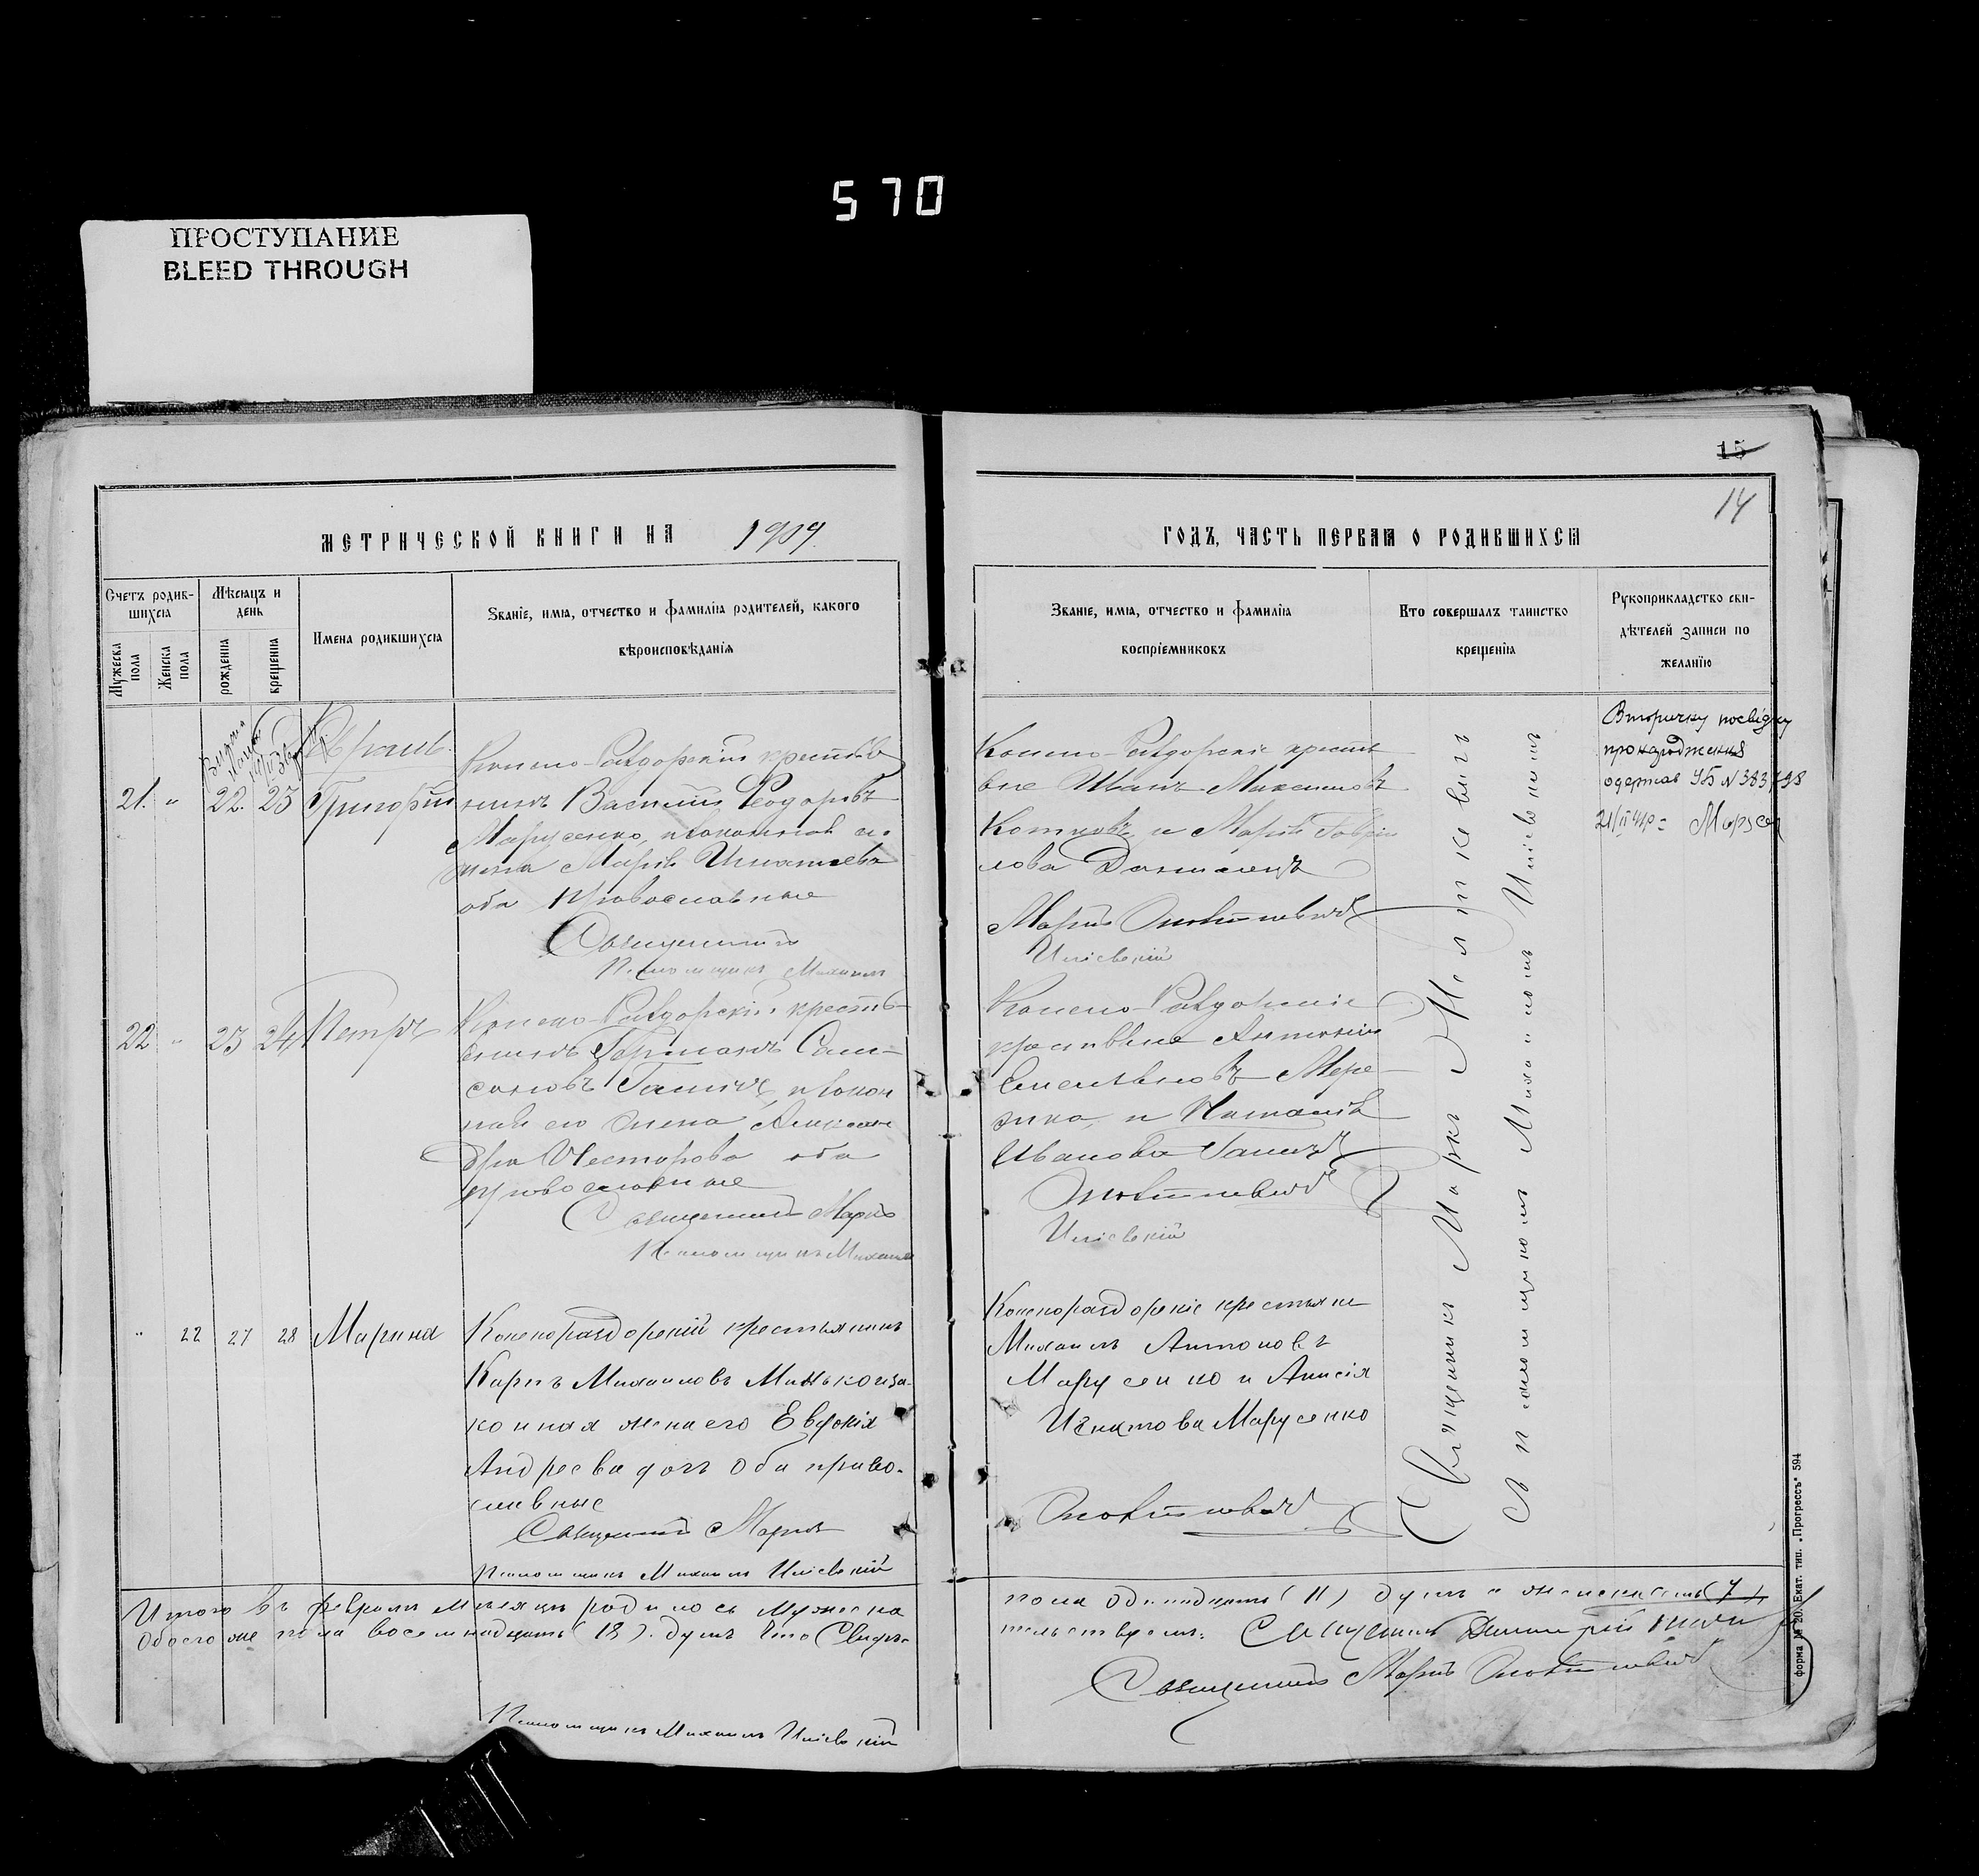 570
ПРОСТУПАНИЕ
BLEED THROUGH
15
14
МЕТРИЧЕСКОЙ КНИГИ НА 1909
ГОДЪ, ЧАСТЬ ПЕРВАЯ О РОДИВШИХСЯ
Счетъ родившихся
Мужеска пола
Женска пола
Мѣсяцъ и день
рожденія
крещенія
Имена родившихся
Званіе, имя, отчество и фамилія родителей, какого
вѣроисповѣданія
Званіе, имя, отчество и фамилія
воспріемниковъ
Кто совершалъ таинство
крещенія
Рукоприкладство сви-
дѣтелей записи по
желанію
21. " 22. 23 Григорій
Конско-Раздорскій крестья
нинъ Василій Феодоровъ
Марусенко, и законная его
жена Марія Игнатьева
оба православные
Священникъ
Псаломщикъ Михаилъ
Конско-Раздорскіе крестья
не Иванъ Максимовъ
и Марія Гаврі
лова
Маркъ
Иліевскій
Вторичну посвідку
про народження
одержав УБ N 383798
22 " 23 24 Петръ
Конско-Раздорскій кресть-
янинъ Германъ Сам-
соновъ и закон
ная его жена Алексан
дра Нестерова оба
православные
Священникъ Маркъ
Псаломщикъ Михаилъ
Конско-Раздорскіе
крестьяне Антоній
Емельяновъ Мере-
жко, и Наталія
Иванова
Иліевскій
" 22 27 28 Марина
Конскораздорскій крестьянинъ
Карпъ Михаиловъ Минько и за-
конная жена его Евдокія
Андреева дочь Оба право-
славные
Священникъ Маркъ
Псаломщикъ Михаилъ Иліевскій
Конскораздорскіе крестьяне
Михаилъ Антоновъ
Марусенко и Анисія
Игнатова Марусенко
Священникъ Маркъ
Съ псаломщикомъ Михаиломъ Иліевскимъ
Итого въ Февралѣ мѣсяцѣ родилось мужеска
пола одинадцать (11) душъ а женска семь (7),
Обоего же пола восемнадцать (18). душъ Что Свидѣ-
тельствуемъ: Священникъ Димитрій
Священникъ Маркъ
Псаломщикъ Михаилъ Иліевскій
форма № 20. Екат. тип. „Прогрессъ" 594